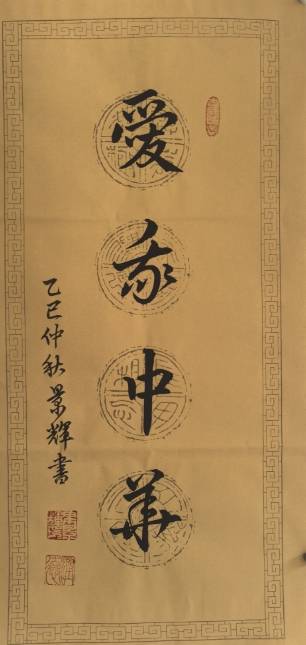 愛我中華
乙巳仲秋景輝書